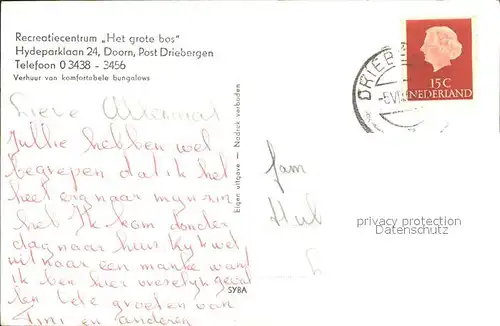 Recreatiecentrum „Het grote bos"
Hydeparklaan 24, Doorn, Post Driebergen
Telefoon 0 3438 - 3456
Verhuur van komfortabele bungalows
Lieve Allemaal
Jullie hebben wel
begrepen dat ik het
heel erg naar mijn zin
heb Ik kom donder
dag naar huis kijk wel
uit naar een manke want
ik ben hier vreselijk geval
len vele groeten van
Tini en anderen
Eigen uitgave — Nadruk verboden
SYBA
fam
Hul
DRIEB
15 C
NEDERLAND
privacy protection
Datenschutz